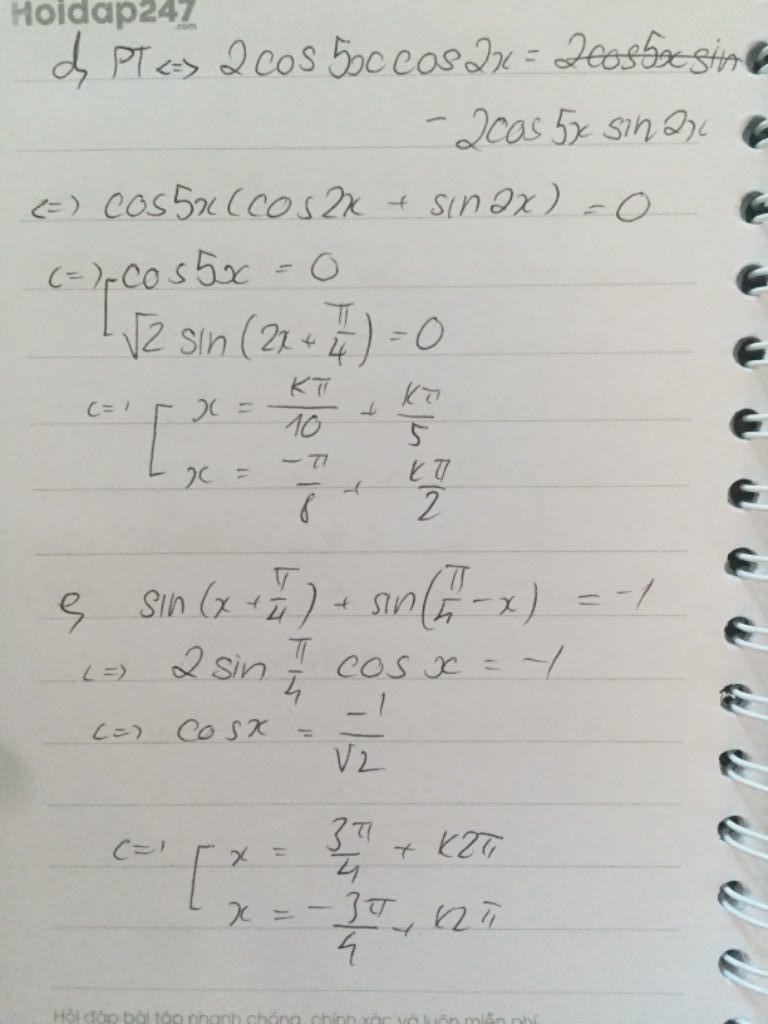 Hoidap247
.com
d, PT <=> 2cos5xcos2x = 2cos5x sin
- 2cos5x sin2x
<=> cos5x(cos2x + sin2x) = 0
<=> [ cos5x = 0
√2 sin(2x + π/4) = 0
<=> [ x = kπ/10 + kπ/5
x = -π/8 + kπ/2
e, sin(x + π/4) + sin(π/4 - x) = -1
<=> 2 sin π/4 cos x = -1
<=> cosx = -1/√2
<=> [ x = 3π/4 + k2π
x = -3π/4 + k2π
Hỏi đáp bài tập nhanh chóng, chính xác và luôn miễn phí